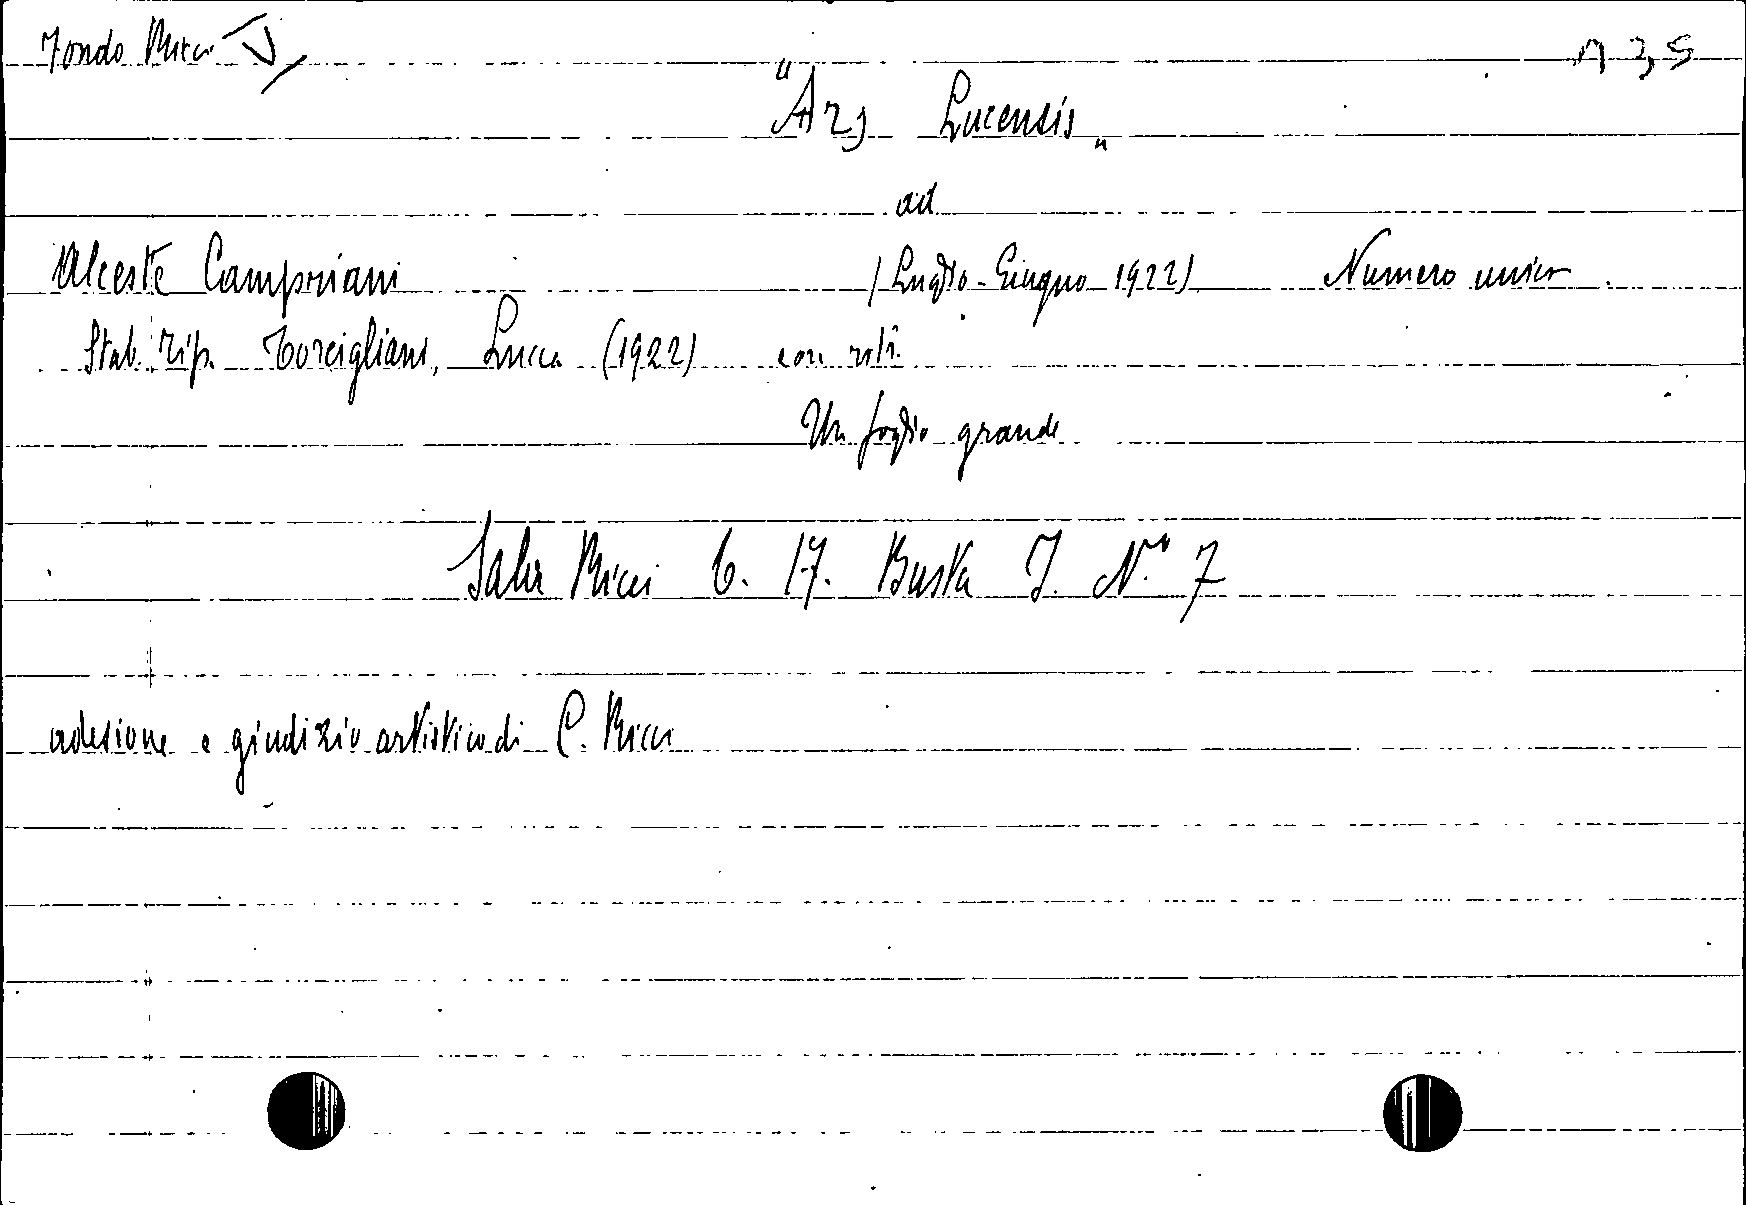 Fondo Ricci n 35
"Ars Lucensis„
ad
Alceste Campriani (Luglio-Giugno 1922) Numero unico
Stab. Tip. Torcigliani, Lucca (1922) con ritr.
Un foglio grande
Sala Ricci C. 17. Busta I. N.º 7
adesione e giudizio artistico di C. Ricci